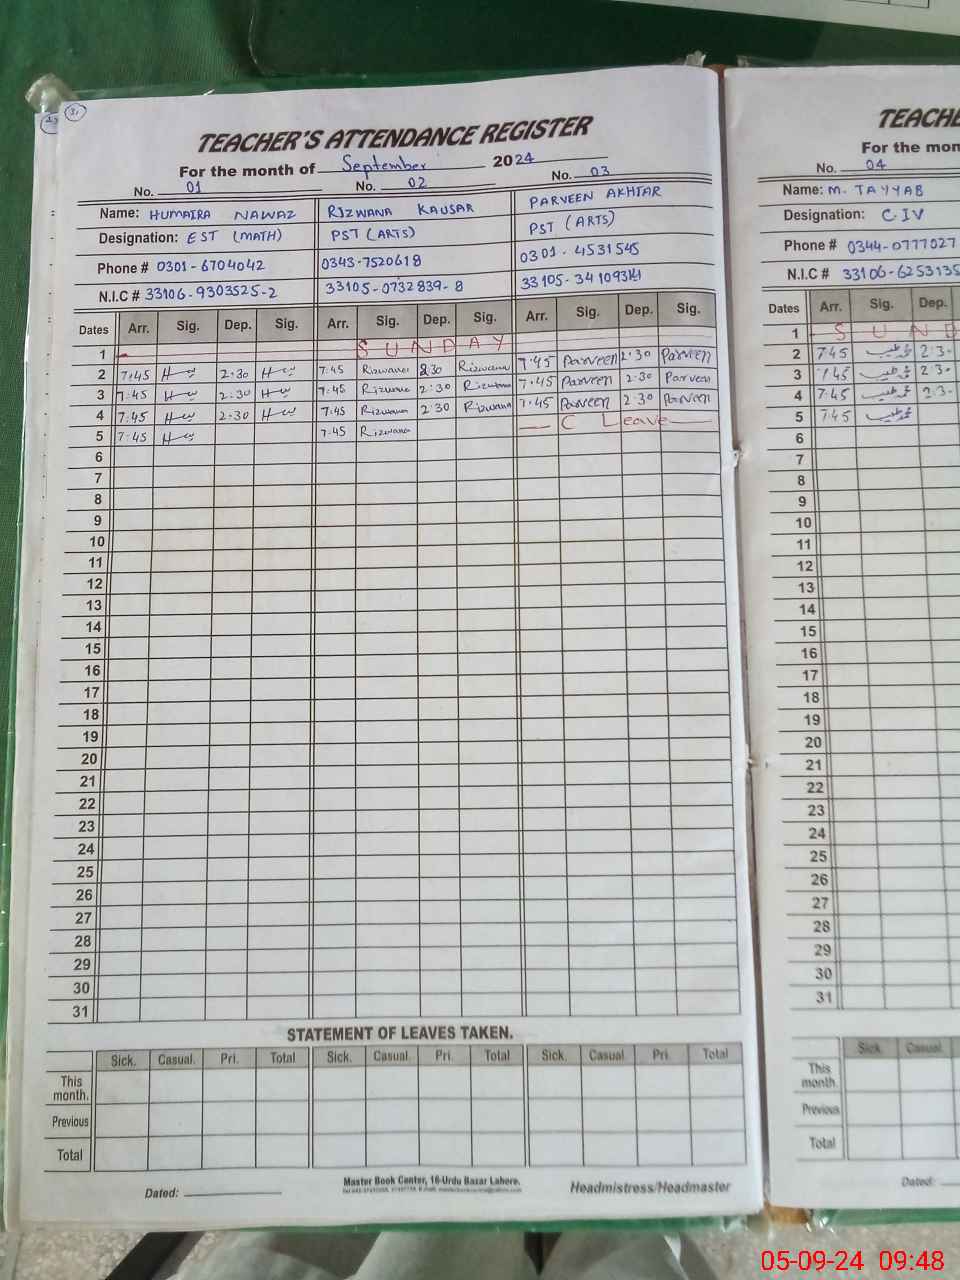 3,
TEACHER'S ATTENDANCE REGISTER
For the month of September 2024
No. 01 No. 02 No. 03
Name: HUMAIRA NAWAZ RIZWANA KAUSAR PARVEEN AKHTAR
Designation: EST (MATH) PST (ARTS) PST (ARTS)
Phone # 0301-6704042 0343-7520618 0301-4531545
N.I.C # 33106-9303525-2 33105-0732839-8
Dates Arr. Sig. Dep. Sig. Arr. Sig. Dep. Sig. Arr. Sig. Dep. Sig.
1 SUNDAY
2 7:45 2:30 7:45 Rizwana 2:30 Rizwana 7:45 Parveen 2:30 Parveen
3 7:45 2:30 7:45 Rizwana 2:30 Rizwana 7:45 Parveen 2:30 Parveen
4 7:45 2:30 7:45 Rizwana 2:30 Rizwana 7:45 Parveen 2:30 Parveen
5 7:45 7:45 Rizwana C Leave
6
7
8
9
10
11
12
13
14
15
16
17
18
19
20
21
22
23
24
25
26
27
28
29
30
31
STATEMENT OF LEAVES TAKEN.
Sick. Casual. Pri. Total Sick. Casual. Pri. Total Sick. Casual. Pri. Total
This month.
Previous
Total
Master Book Center, 16-Urdu Bazar Lahore.
Dated: Headmistress/Headmaster
TEACHE
For the mon
No. 04
Name: M. TAYYAB
Designation: C IV
Phone # 0344-0777027
N.I.C # 33106-6253135
Dates Arr. Sig. Dep.
1 SUND
2 745 محمد طیب 2:3
3 745 محمد طیب 2:3
4 7:45 محمد طیب 2:3
5 7:45 محمد طیب
6
7
8
9
10
11
12
13
14
15
16
17
18
19
20
21
22
23
24
25
26
27
28
29
30
31
Sick. Casual.
This month.
Previous
Total
Dated:
05-09-24 09:48